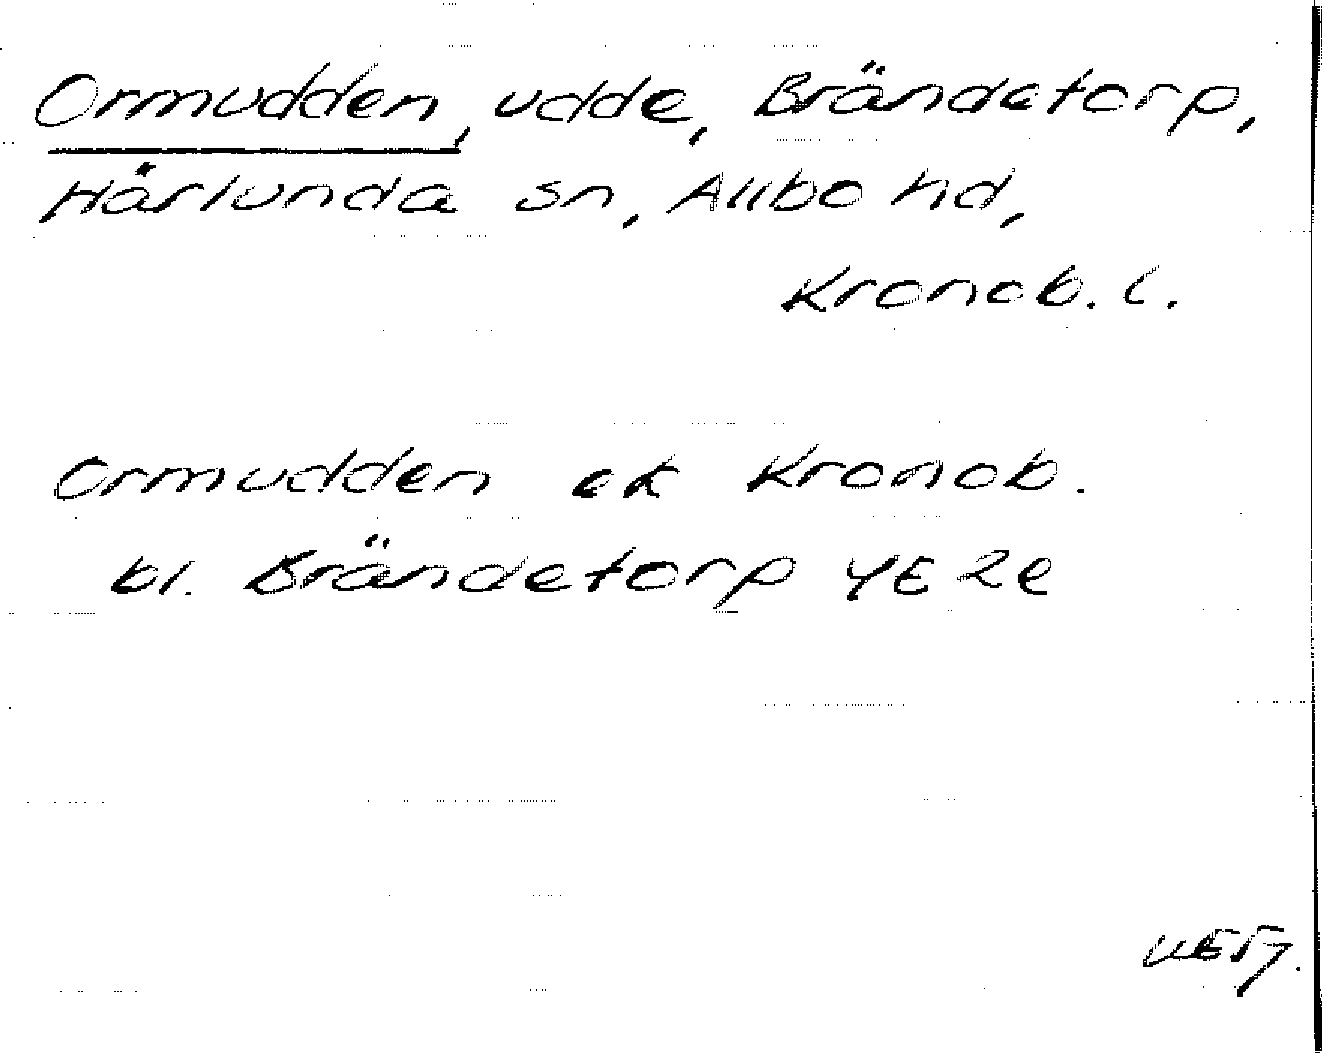 Ormudden, udde, Brändetorp,
Härlunda sn, Allbo hd,
Kronob. l.
Ormudden ek Kronob.
bl. Brändetorp 4E 2e